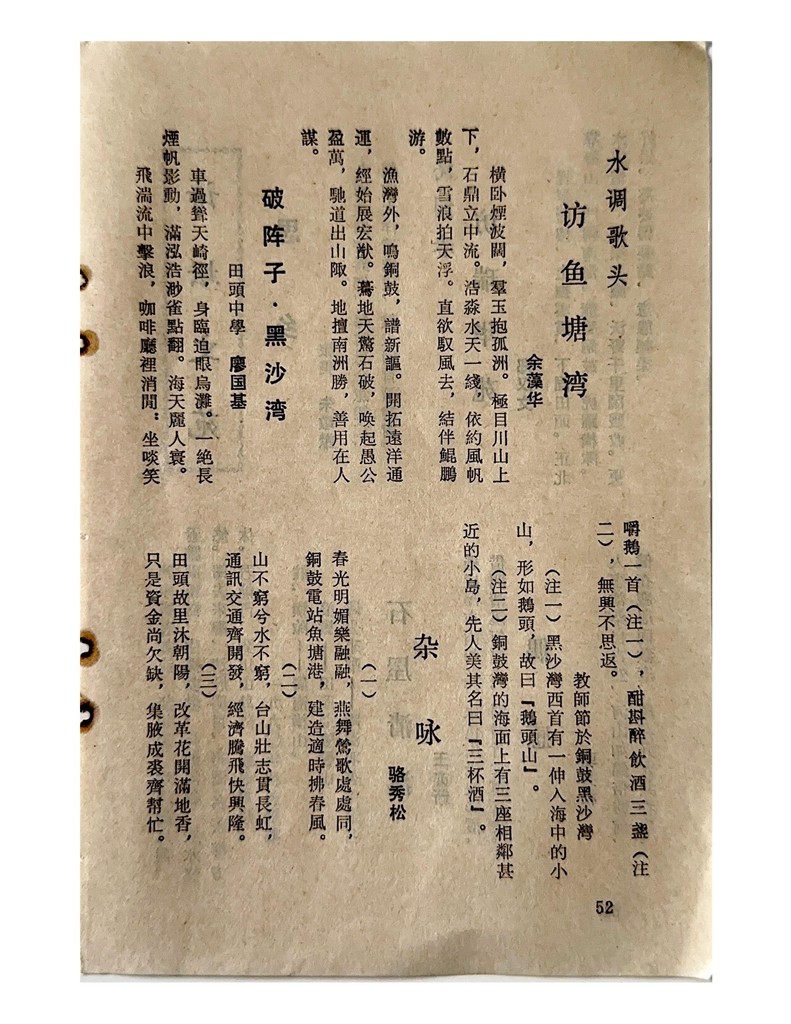 水调歌头
访鱼塘湾
余藻华
橫卧煙波闊，羣玉抱孤洲。極目川山上
下，石鼎立中流。浩淼水天一綫，依約風帆
數點，雪浪拍天浮。直欲馭風去，結伴鯤鵬
游。
漁灣外，鳴銅鼓，譜新謳。開拓遠洋通
運，經始展宏猷。驀地天驚石破，喚起愚公
盈萬，馳道出山陬。地擅南洲勝，善用在人
謀。
破阵子·黑沙湾
田頭中學　廖国基
車過聳天崎徑，身臨迫眼烏灘。一絶長
煙帆影動，滿泓浩渺雀點翻。海天麗人寰。
飛湍流中擊浪，咖啡廳裡消閒。坐啖笑
嚼鵝一首（注一），酣斟醉飲酒三盞（注
二），無興不思返。
教師節於銅鼓黑沙灣
（注一）黑沙灣西首有一伸入海中的小
山，形如鵝頭，故曰『鵝頭山』。
（注二）銅鼓灣的海面上有三座相鄰甚
近的小島，先人美其名曰『三杯酒』。
杂咏
骆秀松
（一）
春光明媚樂融融，燕舞鶯歌處處同，
銅鼓電站魚塘港，建造適時拂春風。
（二）
山不窮兮水不窮，台山壯志貫長虹，
通訊交通齊開發，經濟騰飛快興隆。
（三）
田頭故里沐朝陽，改革花開滿地香，
只是資金尚欠缺，集腋成裘齊幫忙。
52